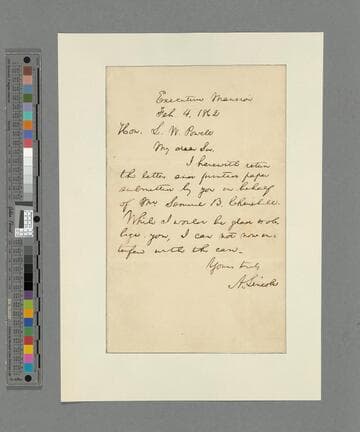 Executive Mansion
Feb. 4, 1862
Hon. L. W. Powell
My dear Sir.
I herewith return
the letter and printed paper
submitted by you on behalf
of Mr Samuel B. Churchill.
While I would be glad to ob-
lige you, I can not now in-
terfere with the case.
Yours truly
A. Lincoln